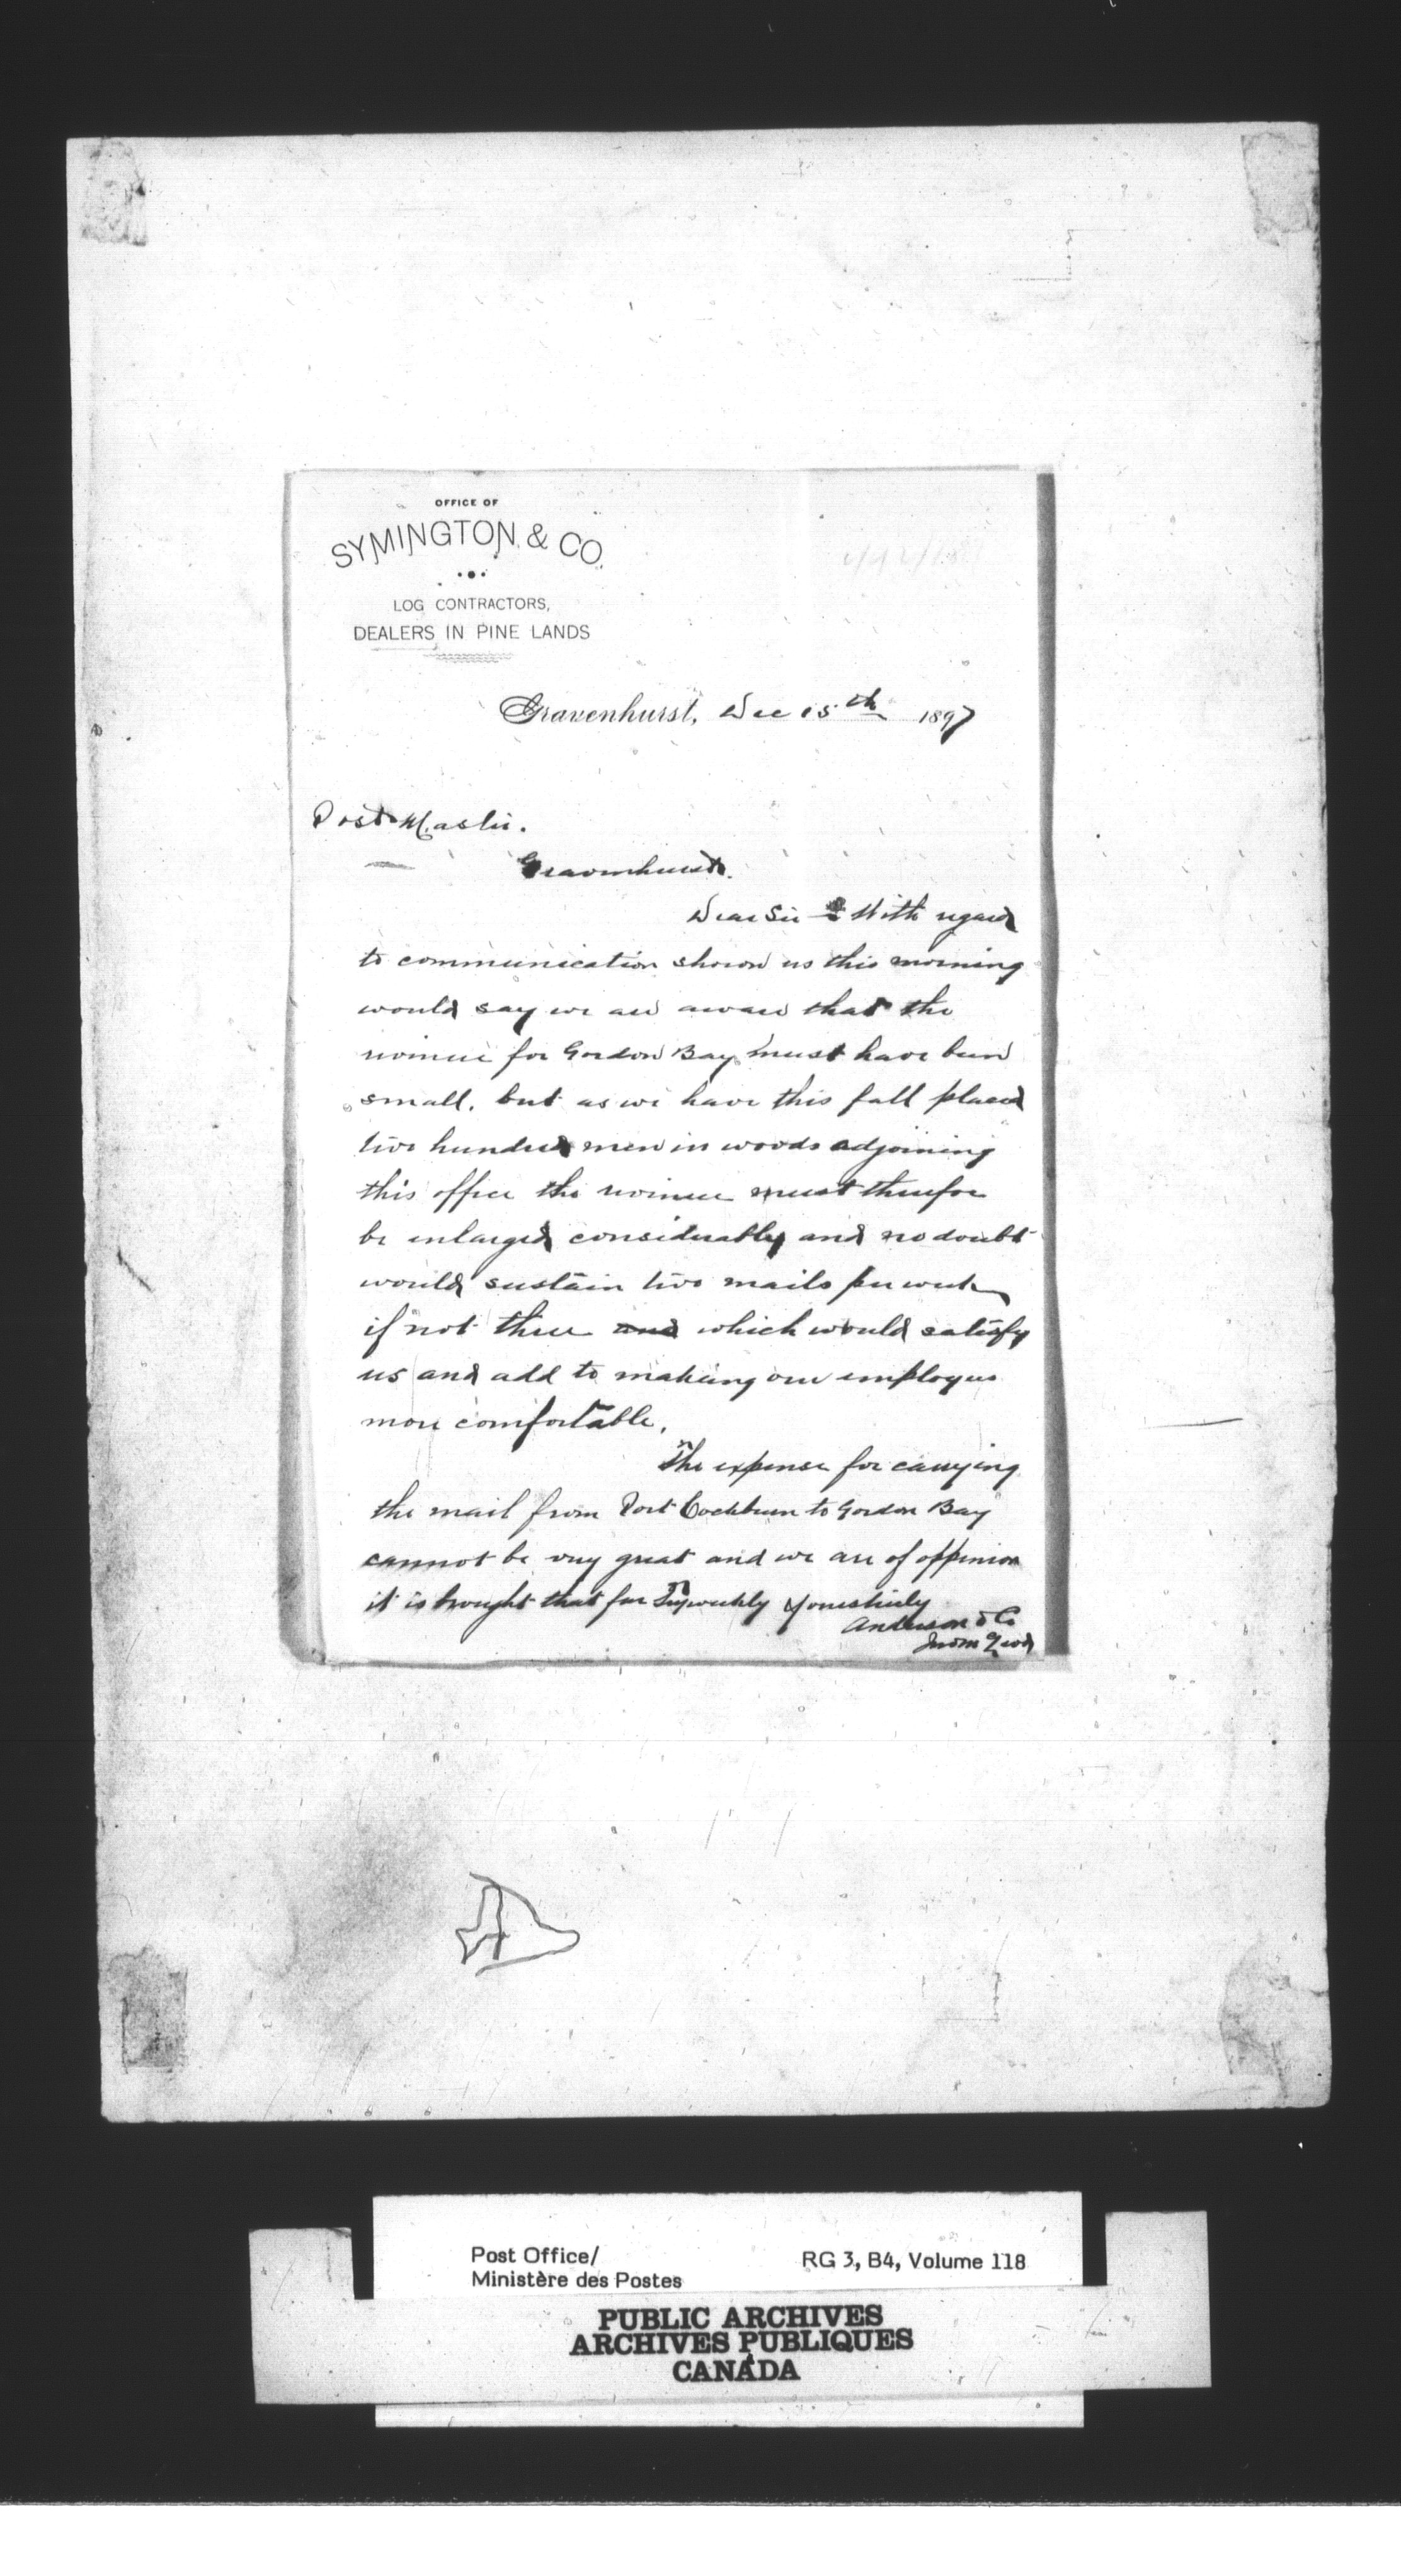 OFFICE OF
SYMINGTON & CO.
LOG CONTRACTORS,
DEALERS IN PINE LANDS
Gravenhurst, Dec 15th 1897
Post Master.
Gravenhurst.
Dear Sir With regard
to communication shown us this morning
would say we are aware that the
revenue for Gordon Bay must have been
small, but as we have this fall placed
two hundred men in woods adjoining
this office the revenue must therefore
be enlarged considerably and no doubt
would sustain two mails per week
if not three and which would satisfy
us and add to making our employees
more comfortable.
The expense for carrying
the mail from Port Cockburn to Gordon Bay
cannot be very great and we are of oppinion
it is brought that far Triweekly Yours truly
Anderson & Co
Post Office/ RG 3, B4, Volume 118
Ministère des Postes
PUBLIC ARCHIVES
ARCHIVES PUBLIQUES
CANADA